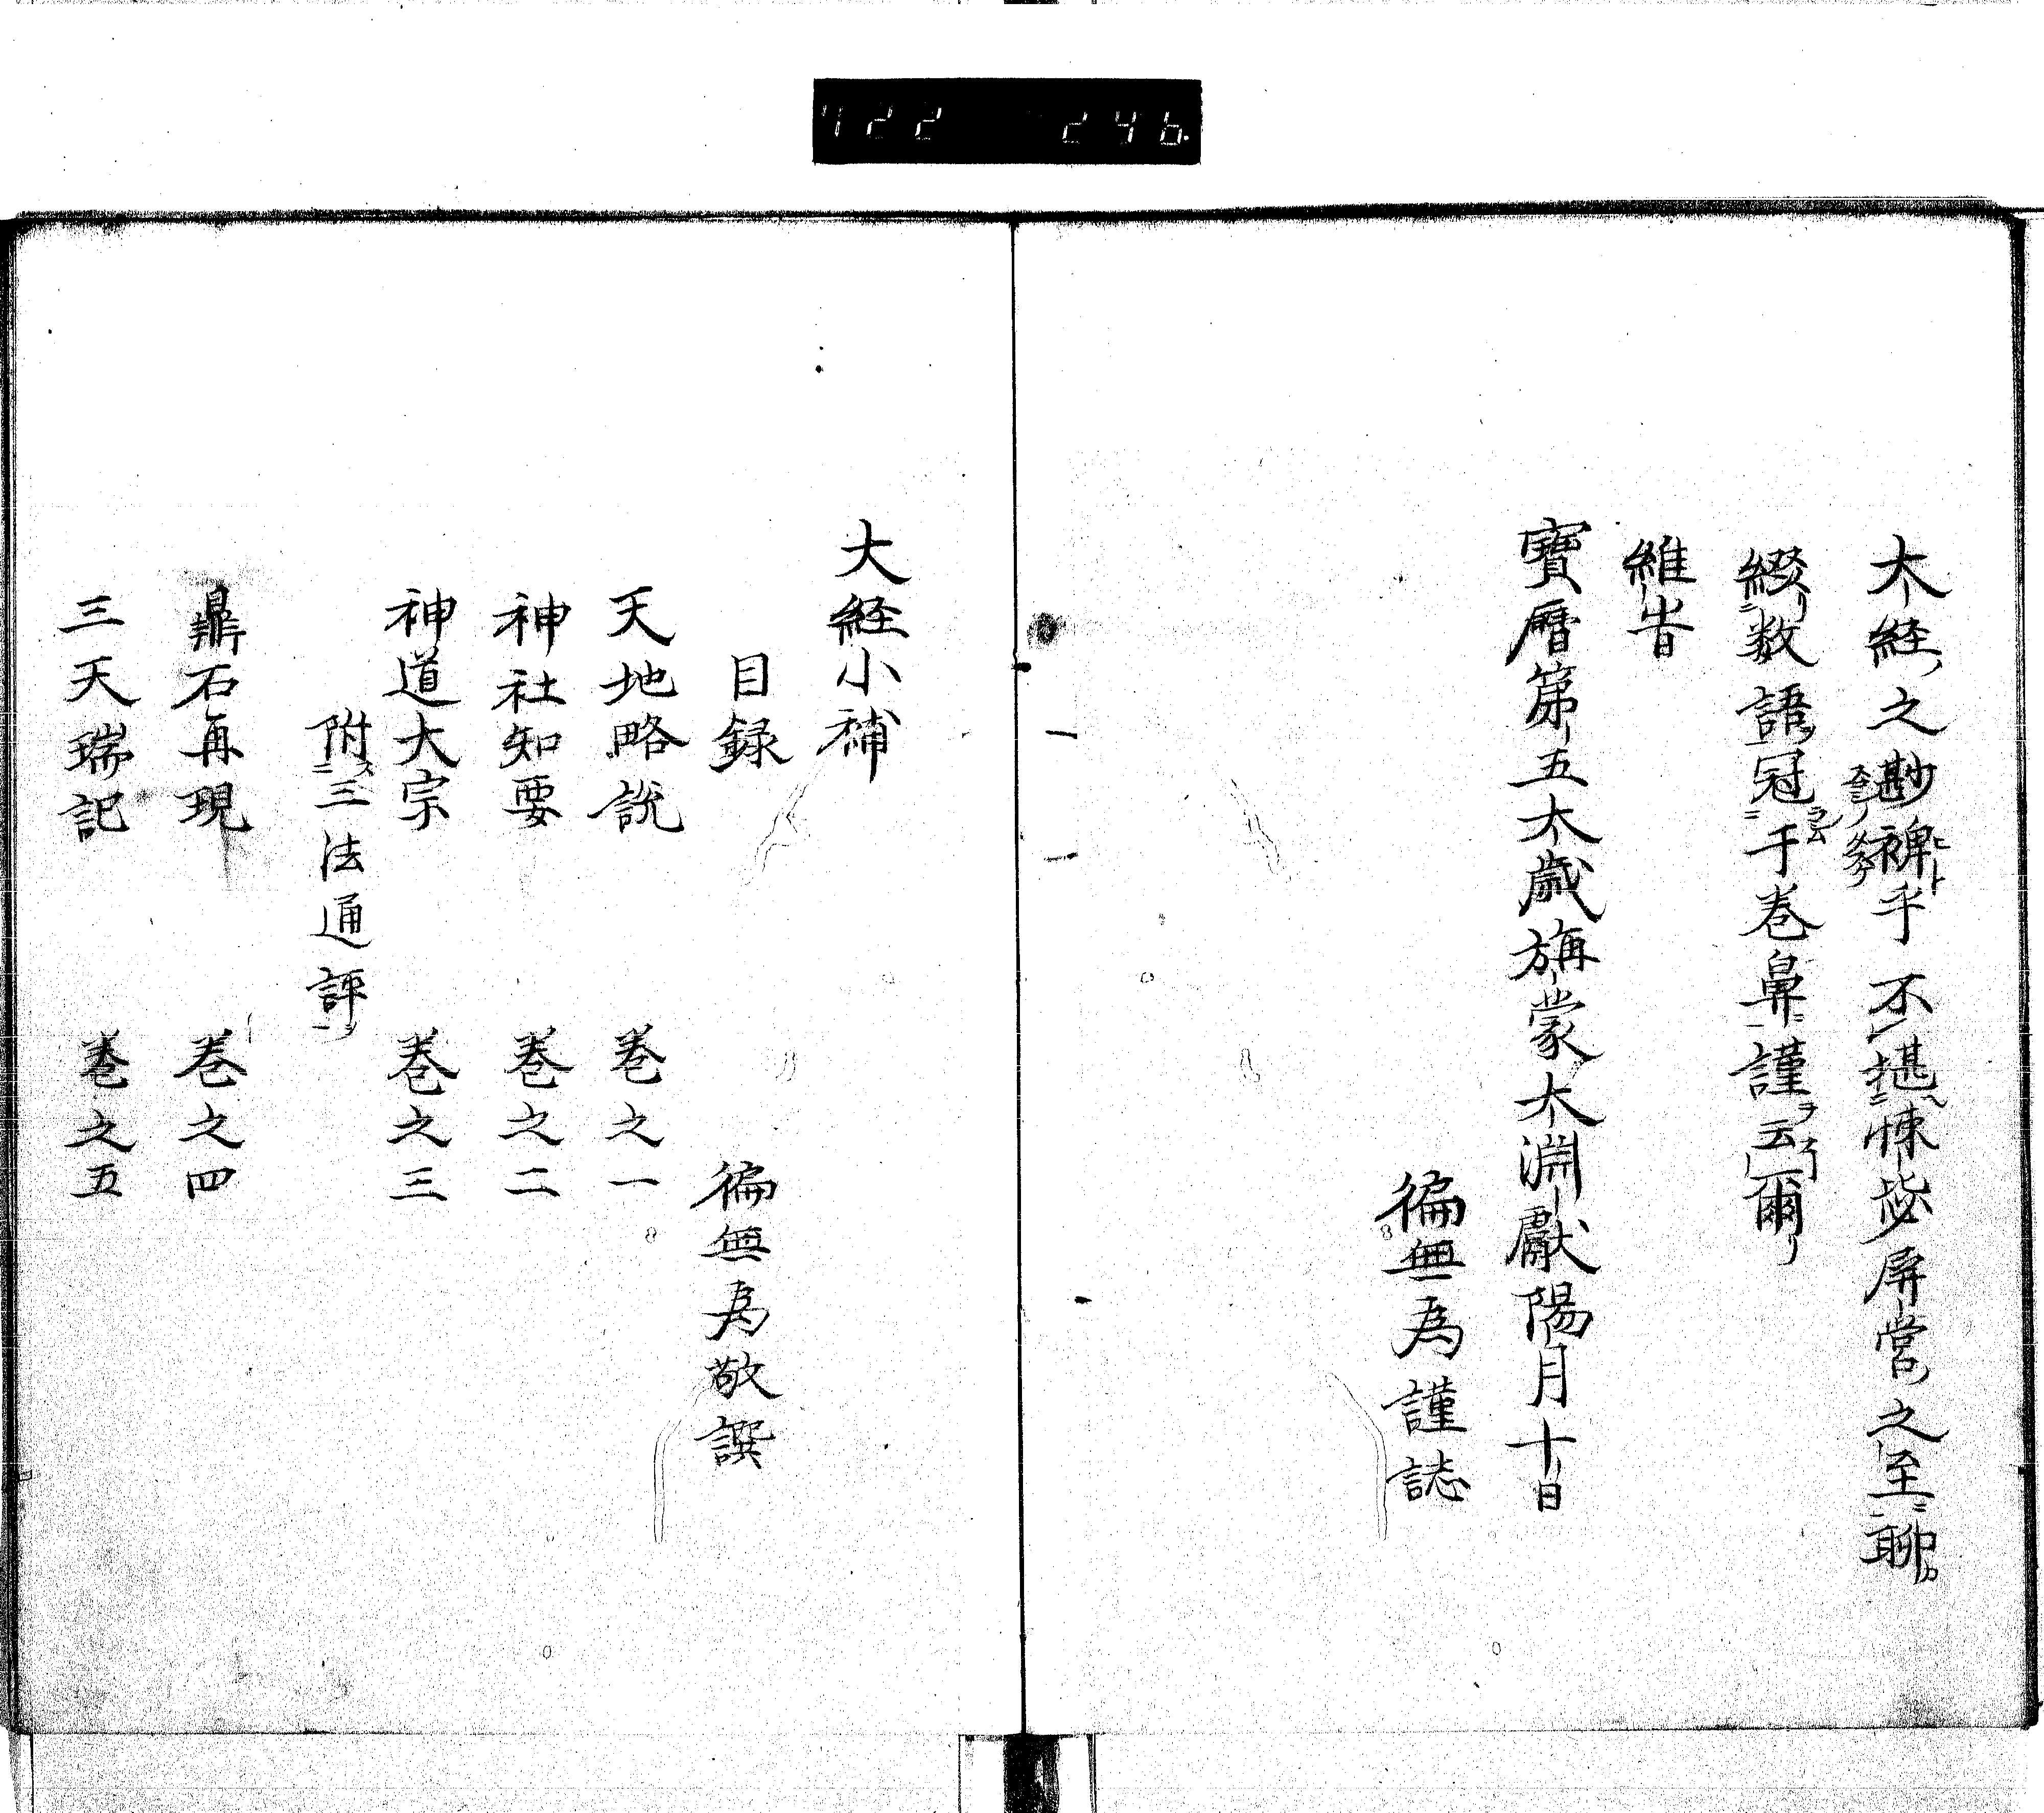 722 246
大経之尠裨乎不堪悚毖屏営之至聊
綴数語冠于巻鼻謹云爾
維旹
寶暦第五太歳旃蒙大淵獻陽月十日
徧無為謹誌
大経小補
目録
徧無為敬譔
天地略説 巻之一
神社知要 巻之二
神道大宗 巻之三
附三法通評
鼎石再現 巻之四
三天瑞記 巻之五